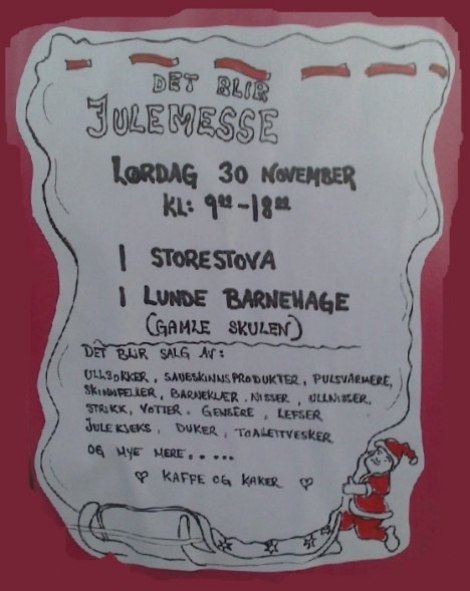 DET BLIR
JULEMESSE
LØRDAG 30 NOVEMBER
KL: 9⁰⁰-18⁰⁰
I STORESTOVA
I LUNDE BARNEHAGE
(GAMLE SKULEN)
DET BLIR SALG AV:
ULLSOKKER, SAUESKINNSPRODUKTER, PULSVARMERE,
SKINNFELLER, BARNEKLÆR, NISSER, ULLNISSER,
STRIKK, VOTTER, GENSERE, LEFSER
JULEKJEKS, DUKER, TOALETTVESKER
OG MYE MERE.....
♡ KAFFE OG KAKER ♡